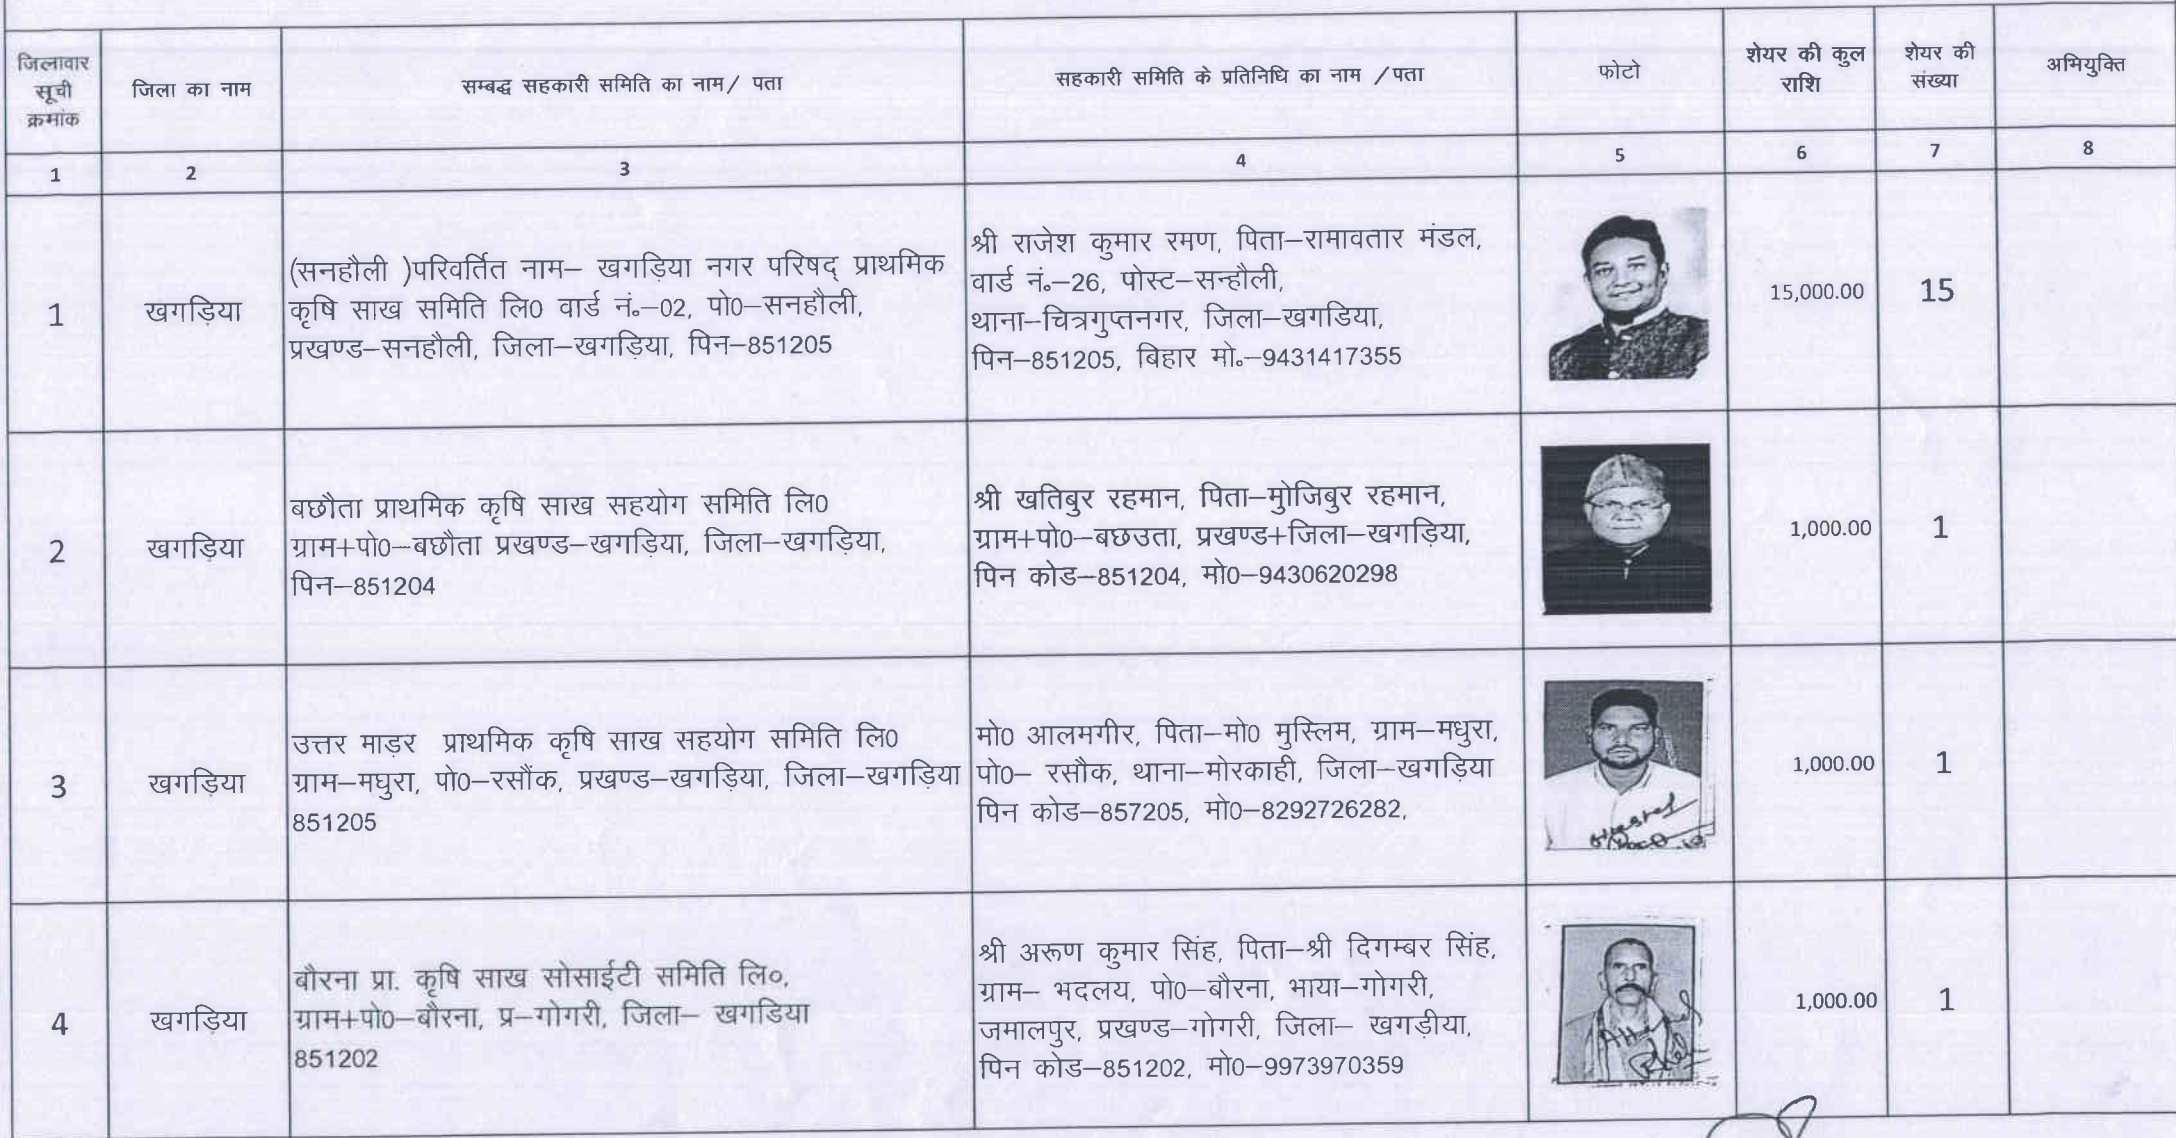 जिलावार
सूची
क्रमांक
जिला का नाम
सम्बद्ध सहकारी समिति का नाम/ पता
सहकारी समिति के प्रतिनिधि का नाम /पता
फोटो
शेयर की कुल
राशि
शेयर की
संख्या
अभियुक्ति
1 2 3 4 5 6 7 8
1
खगड़िया
(सनहौली )परिवर्तित नाम– खगड़िया नगर परिषद् प्राथमिक
कृषि साख समिति लि0 वार्ड नं॰–02, पो0–सनहौली,
प्रखण्ड–सनहौली, जिला–खगड़िया, पिन–851205
श्री राजेश कुमार रमण, पिता–रामावतार मंडल,
वार्ड नं॰–26, पोस्ट–सन्हौली,
थाना–चित्रगुप्तनगर, जिला–खगडिया,
पिन–851205, बिहार मो॰–9431417355
15,000.00
15
2
खगड़िया
बछौता प्राथमिक कृषि साख सहयोग समिति लि0
ग्राम+पो0–बछौता प्रखण्ड–खगड़िया, जिला–खगड़िया,
पिन–851204
श्री खतिबुर रहमान, पिता–मुोजिबुर रहमान,
ग्राम+पो0–बछउता, प्रखण्ड+जिला–खगड़िया,
पिन कोड–851204, मो0–9430620298
1,000.00
1
3
खगड़िया
उत्तर माड़र प्राथमिक कृषि साख सहयोग समिति लि0
ग्राम–मघुरा, पो0–रसौंक, प्रखण्ड–खगड़िया, जिला–खगड़िया
851205
मो0 आलमगीर, पिता–मो0 मुस्लिम, ग्राम–मधुरा,
पो0– रसौक, थाना–मोरकाही, जिला–खगड़िया
पिन कोड–857205, मो0–8292726282,
1,000.00
1
4
खगड़िया
बौरना प्रा. कृषि साख सोसाईटी समिति लि॰,
ग्राम+पो0–बौरना, प्र–गोगरी, जिला– खगडिया
851202
श्री अरूण कुमार सिंह, पिता–श्री दिगम्बर सिंह,
ग्राम– भदलय, पो0–बौरना, भाया–गोगरी,
जमालपुर, प्रखण्ड–गोगरी, जिला– खगड़ीया,
पिन कोड–851202, मो0–9973970359
1,000.00
1